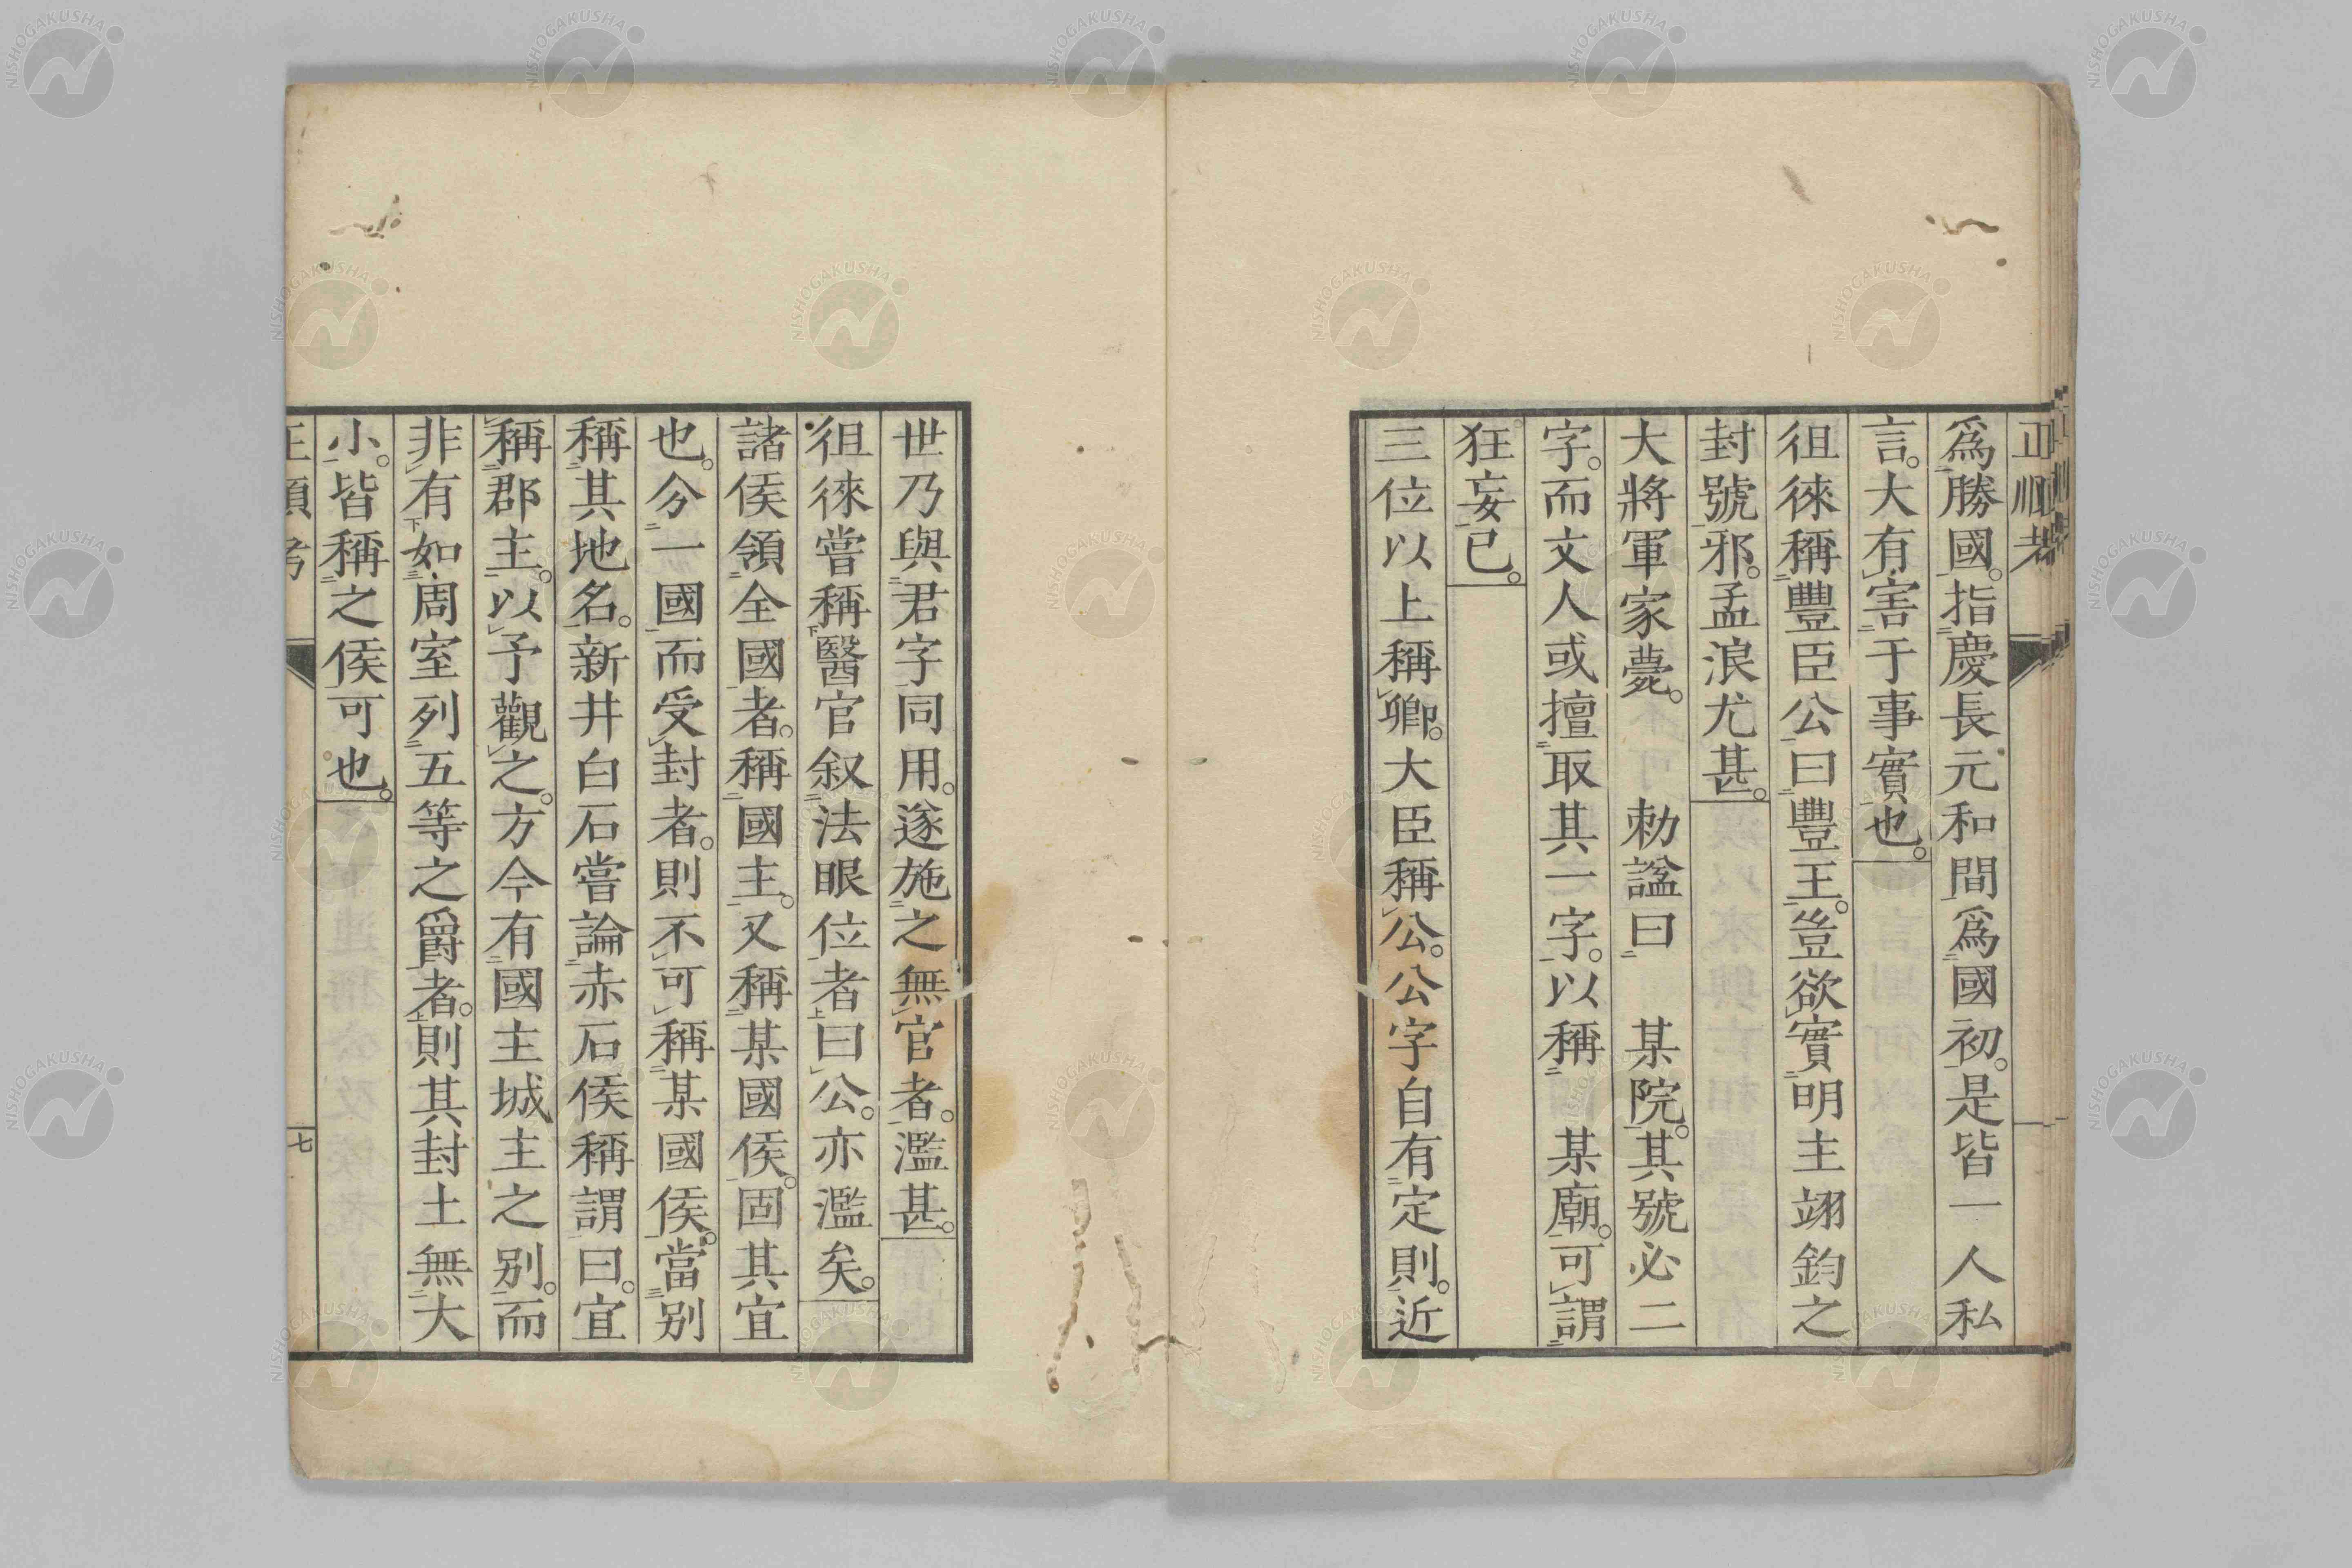 爲勝國。指慶長元和間爲國初。是皆一人私
言。大有害于事實也。
徂徠稱豐臣公曰豐王。豈欲實明主翊鈞之
封號邪。孟浪尤甚。
大將軍家薨。 勅諡曰 某院。其號必二
字。而文人或擅取其一字。以稱 某廟。可謂
狂妄已。
三位以上稱卿。大臣稱公。公字自有定則。近
世乃與君字同用。遂施之無官者。濫甚。
徂徠嘗稱醫官叙法眼位者曰公。亦濫矣。
諸侯領全國者。稱國主。又稱某國侯。固其宜
也。分一國而受封者。則不可稱某國侯。當別
稱其地名。新井白石嘗論赤石侯稱謂曰。宜
稱郡主。以予觀之。方今有國主城主之別。而
非有如周室列五等之爵者。則其封土無大
小。皆稱之侯可也。
七
NISHOGAKUSHA